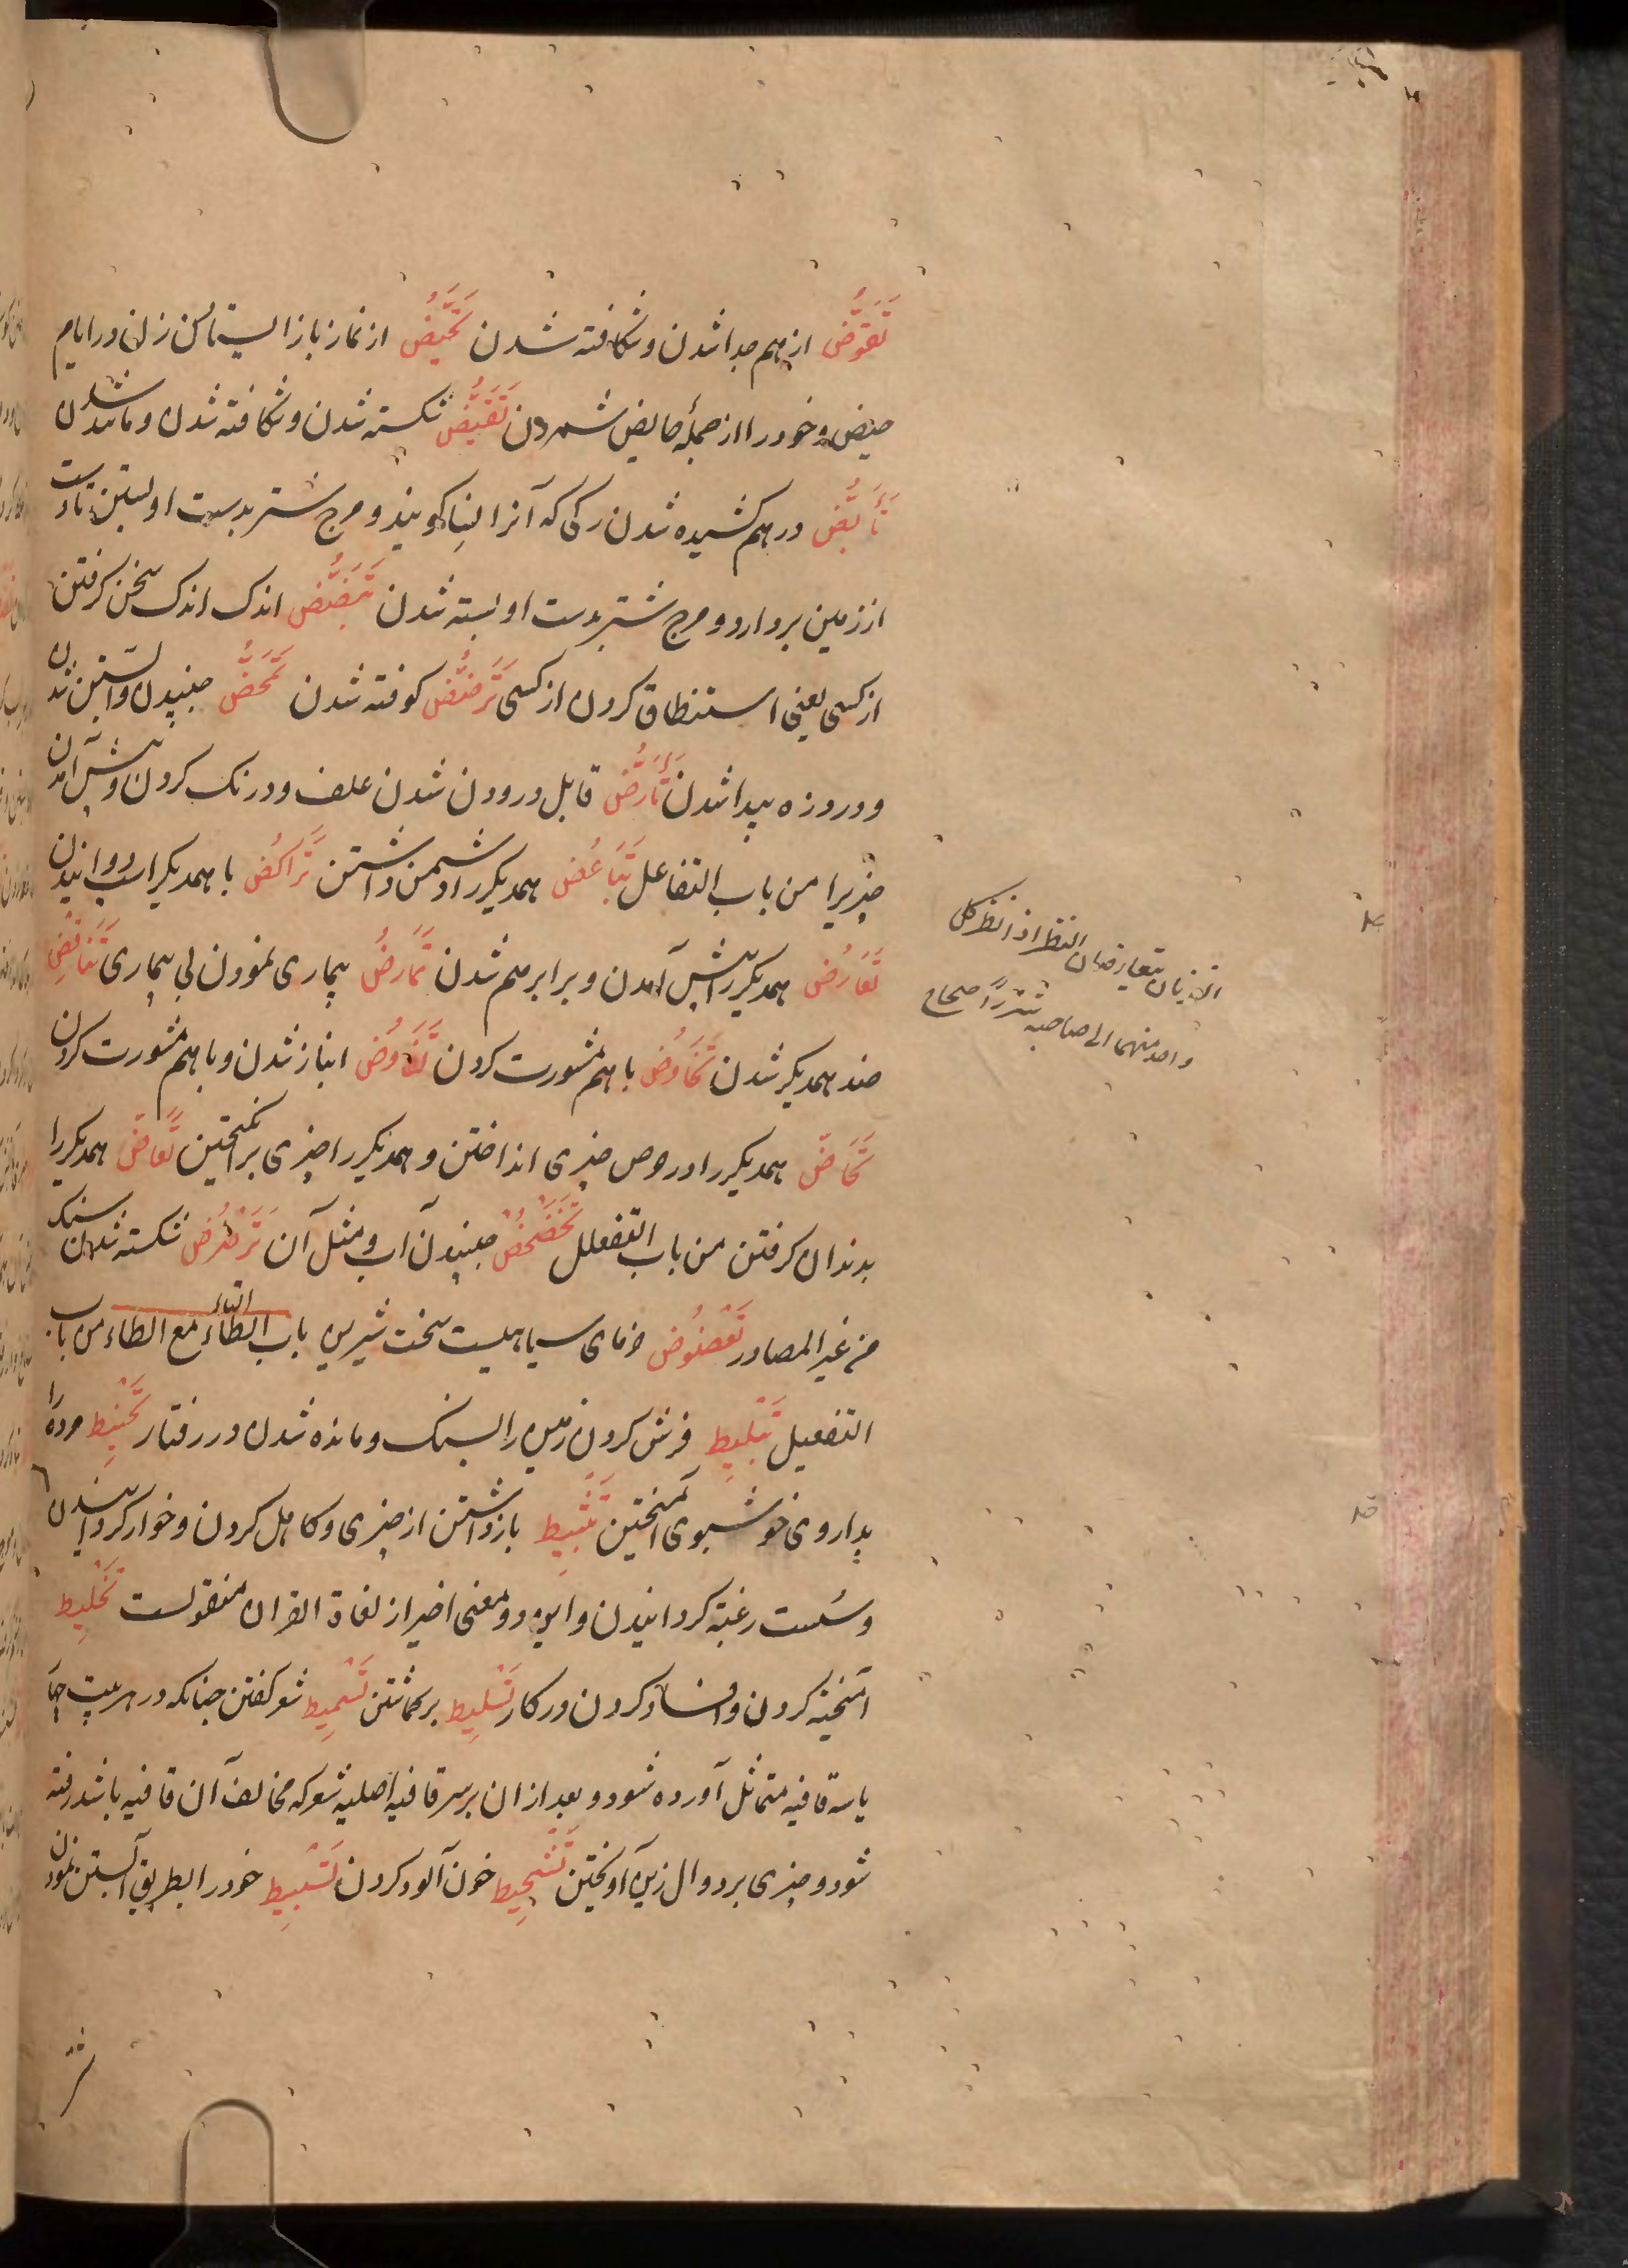 تَقَوُّض از هم جدا شدن و شکافته شدن تَحَیُّض از نماز باز ایستادن زن در ایام
حیض و خود را از جمله حایض شمردن تَقَیُّض شکسته شدن و شکافته شدن و مانند شدن
تَأَبُّض در هم کشیده شدن رکی که آنرا النسا کویند و مرج شتر بدست او بستن تا دست
از زمین بردارد و مرج شتر بدست او بسته شدن تَبَضُّض اندک اندک سخن کرفتن
از کسی یعنی استنطاق کردن از کسی تَرَضُّض کوفته شدن تَمَخُّض جنبیدن و آبستن شدن
و درد زه پیدا شدن تَأَرُّض قابل درودن شدن علف و درنک کردن و پیش آمدن
چیزیرا من باب التفاعل تَبَاغُض همدیکر را دشمن داشتن تَرَاکُض با همدیکر اسب دوانیدن
تَعَارُض همدیکر را پیش آمدن و برابر هم شدن تَمَارُض بیماری نمودن بی بیماری تَنَاقُض
ضد همدیکر شدن تَخَاوُض با هم مشورت کردن تَفَاوُض انباز شدن و با هم مشورت کردن
تَحَاضّ همدیکر را در حوض چیزی انداختن و همدیکر را بچیزی برانکیختن تَعَاضّ همدیکر را
بدندان کرفتن من باب التفعلل تَخَضْخُض جنبیدن آب و مثل آن تَرَضْرُض شکسته شدن سنک
من غیر المصادر تَعْضُوض خرمای سیاهیست سخت شیرین باب التاء مع الطاء من باب
التفعیل تَبْلِیط فرش کردن زمین را بسنک و مانده شدن در رفتار تَحْنِیط مرده را
بداروی خوشبوی آمیختن تَثْبِیط باز داشتن از چیزی و کاهل کردن و خوار کردانیدن
و سست رغبة کردانیدن و این دو معنی اخیر از لغاة القران منقولست تَخْلِیط
آمیخته کردن و افساد کردن در کار تَسْلِیط برکماشتن تَسْمِیط شعر کفتن چنانکه در هر بیت
یا سه قافیه متماثل آورده شود و بعد از ان بر سر قافیه اصلیه شعر که مخالف آن قافیه باشد رفته
شود و چیزی بر دوال زین آویختن تَشْحِیط خون آلود کردن تَسْبِیط خود را بطریق آبستن نمودن
اللذیان یتعارضان النظر اذا نظر کل
واحد منهما الی صاحبه شزرًا صحاح